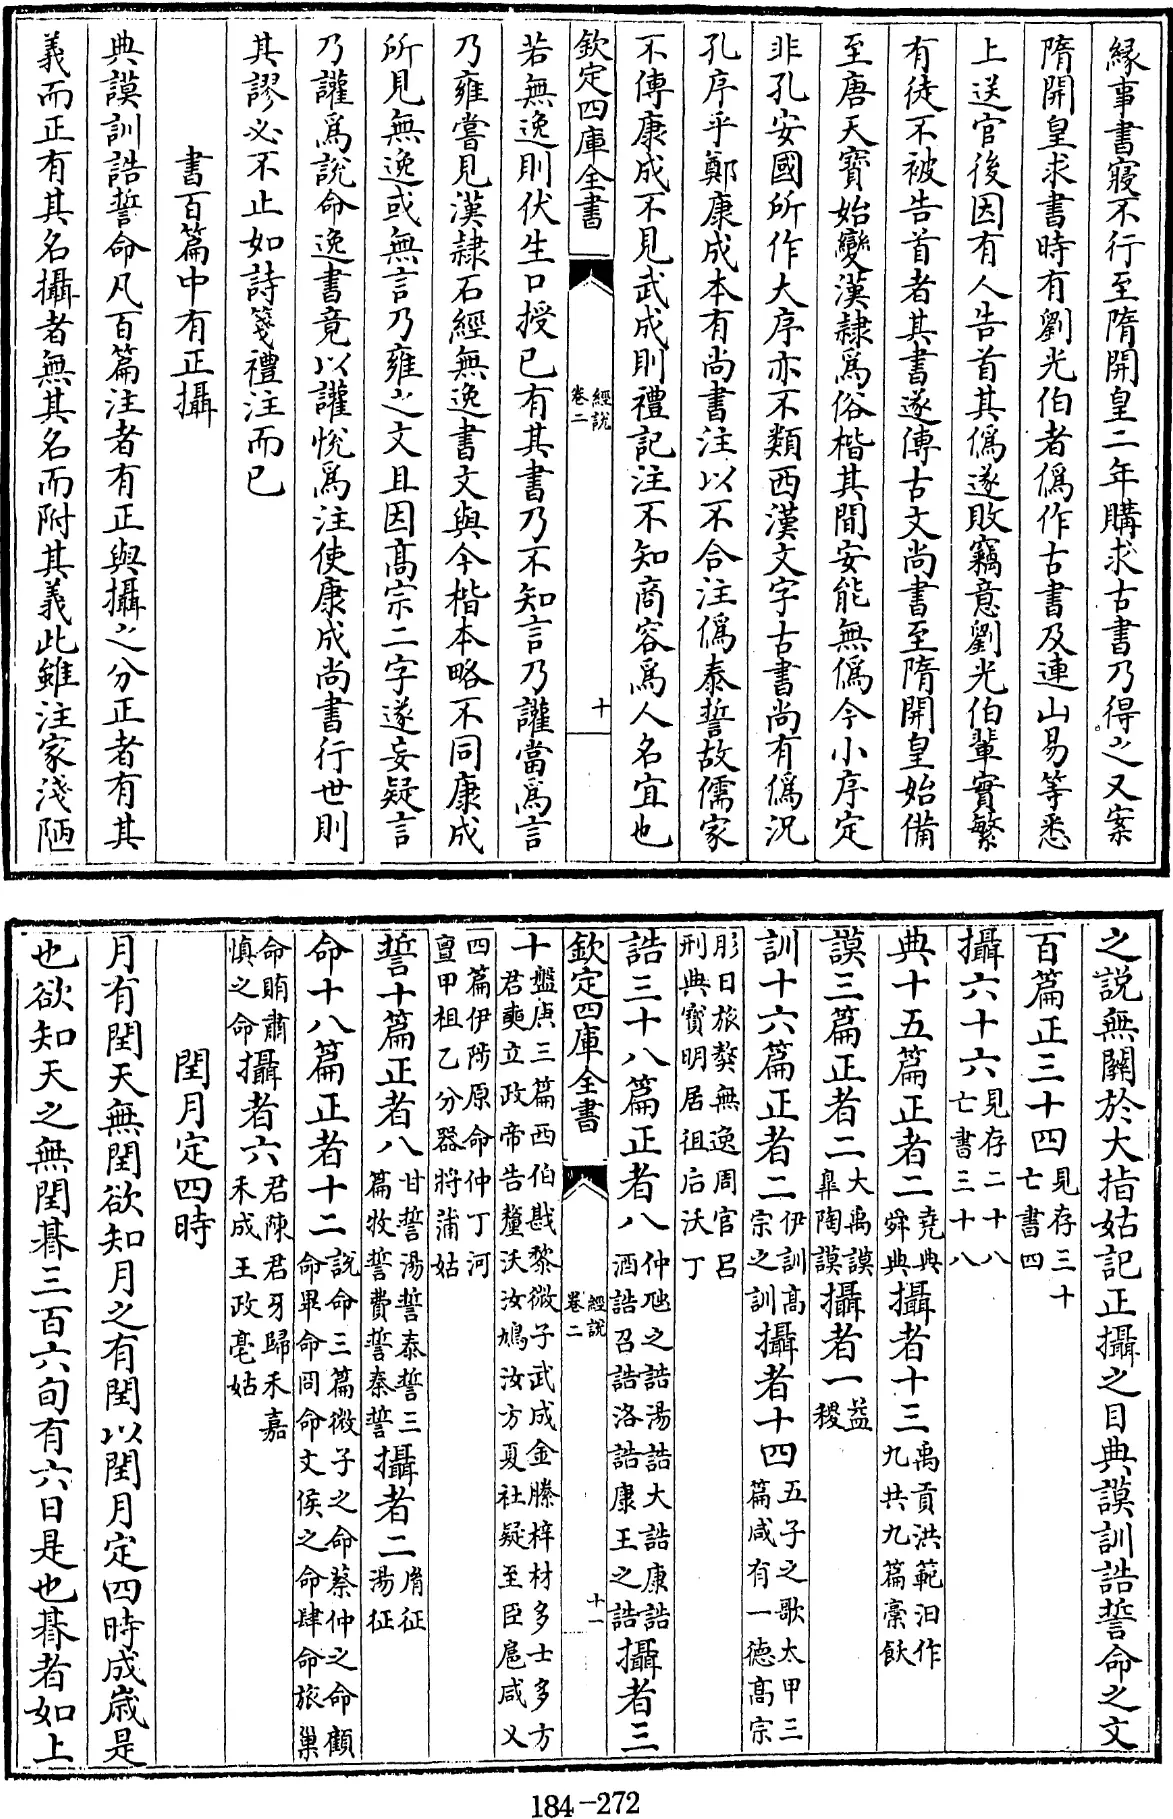 緣事書寢不行至隋開皇二年購求古書乃得之又案
隋開皇求書時有劉光伯者僞作古書及連山易等悉
上送官後因有人告首其僞遂敗竊意劉光伯輩實繁
有徒不被告首者其書遂傳古文尚書至隋開皇始備
至唐天寳始變漢隸爲俗楷其間安能無僞今小序定
非孔安國所作大序亦不類西漢文字古書尚有僞況
孔序乎鄭康成本有尚書注以不合注僞泰誓故儒家
不傳康成不見武成則禮記注不知商容爲人名宜也
欽定四庫全書 經說 卷二 十
若無逸則伏生口授已有其書乃不知言乃讙當爲言
乃雍嘗見漢隸石經無逸書文與今楷本略不同康成
所見無逸或無言乃雍之文且因髙宗二字遂妄疑言
乃讙爲說命逸書竟以讙悅爲注使康成尚書行世則
其謬必不止如詩箋禮注而已
書百篇中有正攝
典謨訓誥誓命凡百篇注者有正與攝之分正者有其
義而正有其名攝者無其名而附其義此雖注家淺陋
之說無關於大指姑記正攝之目典謨訓誥誓命之文
百篇正三十四見存三十亡書四
攝六十六見存二十八亡書三十八
典十五篇正者二堯典舜典攝者十三禹貢洪範汨作九共九篇槀飫
謨三篇正者二大禹謨臯陶謨攝者一益稷
訓十六篇正者二伊訓髙宗之訓攝者十四五子之歌太甲三篇咸有一德髙宗
肜日旅獒無逸周官呂刑典寳明居徂后沃丁
誥三十八篇正者八仲虺之誥湯誥大誥康誥酒誥召誥洛誥康王之誥攝者三
欽定四庫全書 經說 卷二 十一
十盤庚三篇西伯戡黎微子武成金縢梓材多士多方君奭立政帝告釐沃汝鳩汝方夏社疑至臣扈咸乂
四篇伊陟原命仲丁河亶甲祖乙分器將蒲姑
誓十篇正者八甘誓湯誓泰誓三篇牧誓費誓秦誓攝者二𦙍征湯征
命十八篇正者十二說命三篇微子之命蔡仲之命顧命畢命冏命文侯之命肆命旅巢
命賄肅愼之命攝者六君陳君牙歸禾嘉禾成王政亳姑
閏月定四時
月有閏天無閏欲知月之有閏以閏月定四時成歲是
也欲知天之無閏朞三百六旬有六日是也朞者如上
184-272